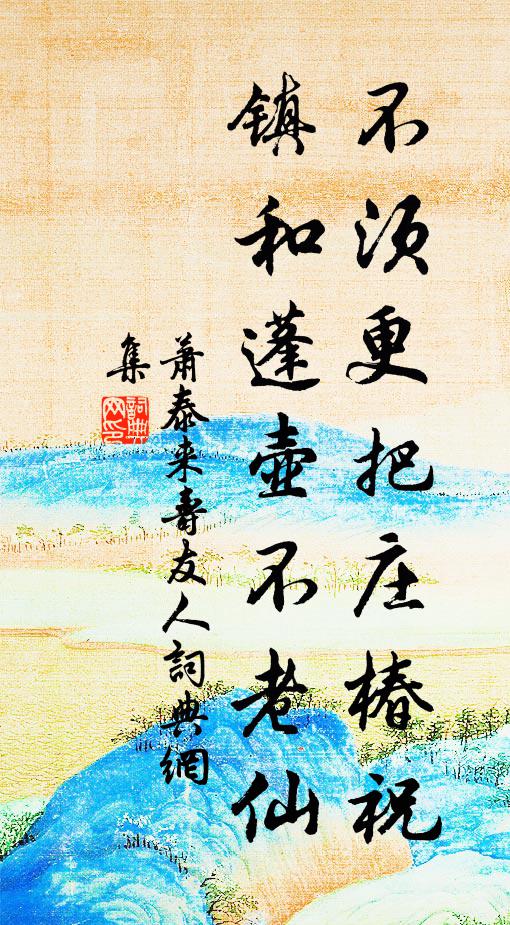 不须更把庄椿祝
镇和蓬壶不老仙
萧泰来寿友人詞典網
集
詞典网印